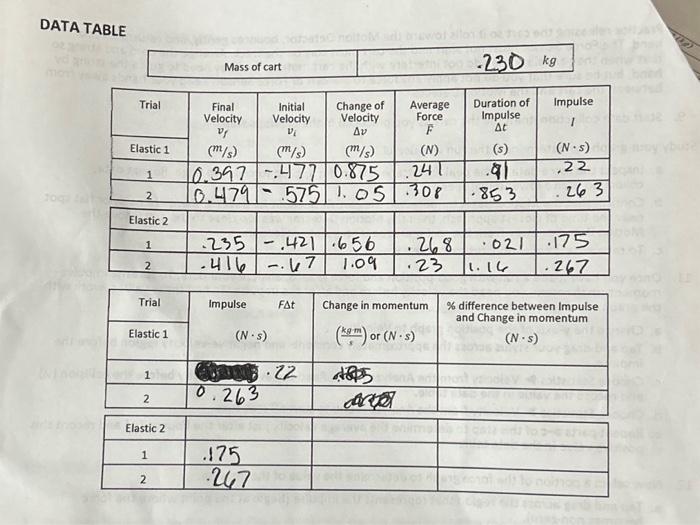 DATA TABLE
Mass of cart .230 kg
Trial Final Velocity Initial Velocity Change of Velocity Average Force Duration of Impulse Impulse
v_f v_i Δv F̄ Δt I
Elastic 1 (m/s) (m/s) (m/s) (N) (s) (N · s)
1 0.397 -.477 0.875 .241 .91 .22
2 0.479 -.575 1.05 .308 .853 .263
Elastic 2
1 .235 -.421 .656 .268 .021 .175
2 .416 -.67 1.09 .23 1.16 .267
Trial Impulse FΔt Change in momentum % difference between Impulse and Change in momentum
Elastic 1 (N · s) (kg·m/s) or (N · s) (N · s)
1 .22
2 0.263
Elastic 2
1 .175
2 .267